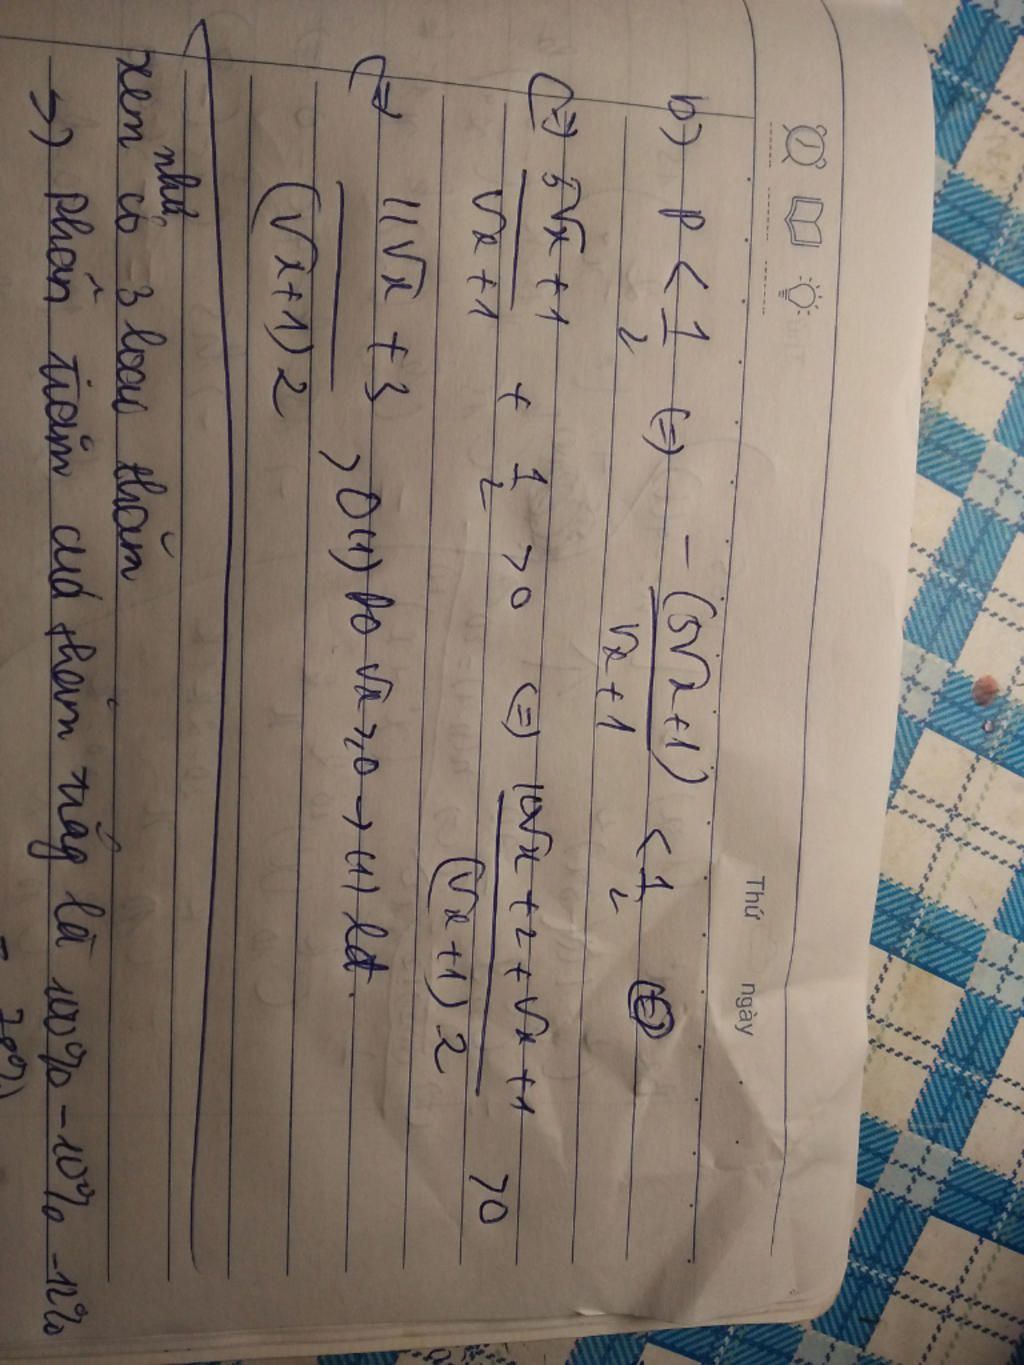 Thứ ngày
b) P < 1/2 (=) -(5√x+1)/(√x+1) < 1/2 (=)
(=) (5√x+1)/(√x+1) + 1/2 >0 (=) (10√x+2+√x+1)/((√x+1)2) >0
(=) (11√x+3)/((√x+1)2) >0(1) Do √x≥0 → (1) lđ.
xem như có 3 loại thảm
→) Phần trăm của thảm trắng là 100% -10% -12%